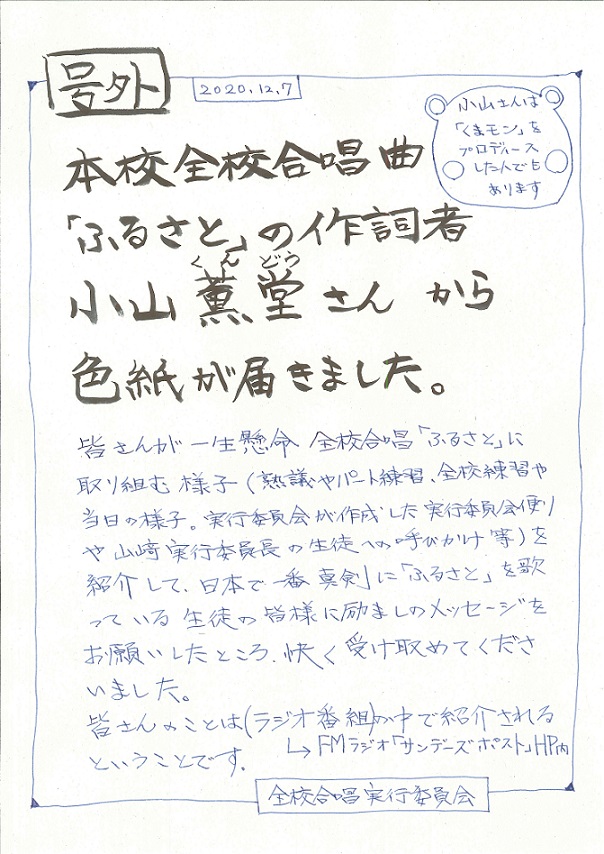 号外
2020.12.7
小山さんは
「くまモン」を
プロデュース
した人でも
あります
本校全校合唱曲
「ふるさと」の作詞者
くんどう
小山薫堂さんから
色紙が届きました。
皆さんが一生懸命 全校合唱「ふるさと」に
取り組む様子(熟議やパート練習、全校練習や
当日の様子。実行委員会が作成した実行委員会便り
や山﨑実行委員長の生徒への呼びかけ等)を
紹介して、日本で一番真剣に「ふるさと」を歌
っている生徒の皆様に励ましのメッセージを
お願いしたところ、快く受け取めてくださ
いました。
皆さんのことは(ラジオ番組)の中で紹介される
→FMラジオ「サンデーズポスト」HP内
ということです。
全校合唱実行委員会